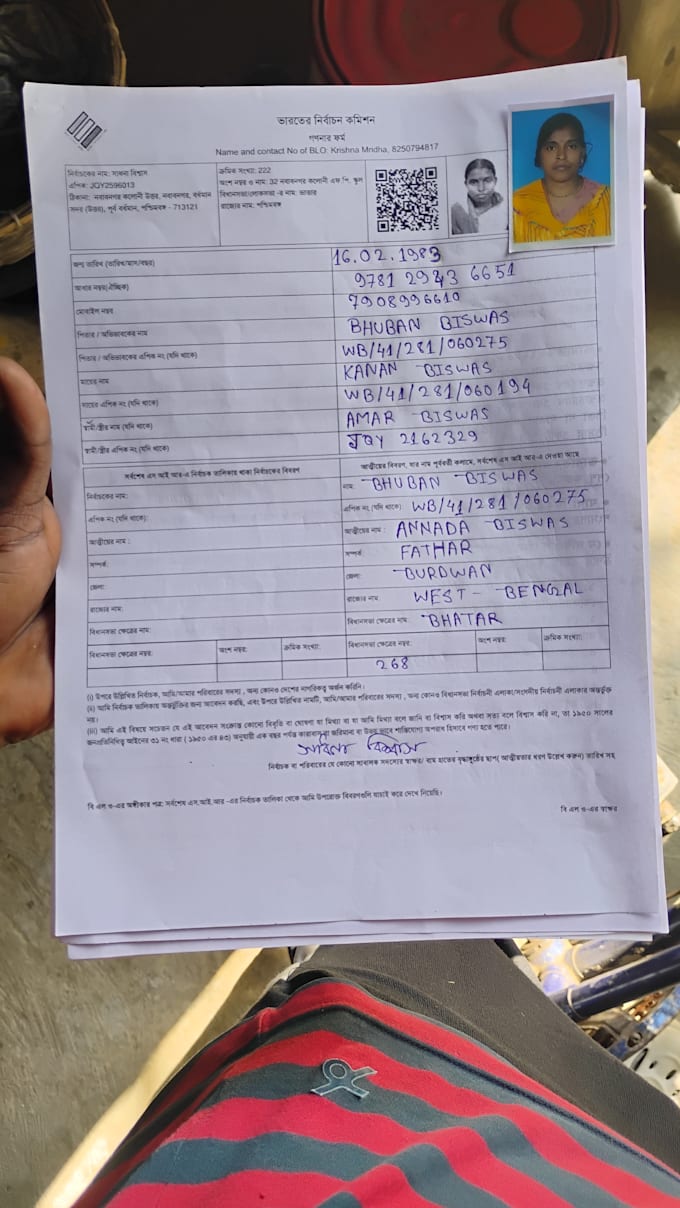 ভারতের নির্বাচন কমিশন
গণনার ফর্ম
Name and contact No of BLO: Krishna Mridha, 8250794817
নির্বাচকের নাম: সাধনা বিশ্বাস
এপিক: JQY2596013
ঠিকানা: নবাবনগর কলোনী উত্তর, নবাবনগর, বর্ধমান
সদর (উত্তর), পূর্ব বর্ধমান, পশ্চিমবঙ্গ - 713121
ক্রমিক সংখ্যা: 222
অংশ নম্বর ও নাম: 32 নবাবনগর কলোনী এফ.পি. স্কুল
বিধানসভা/লোকসভা -র নাম: ভাতার
রাজ্যের নাম: পশ্চিমবঙ্গ
জন্ম তারিখ (তারিখ/মাস/বছর) 16.02.1983
আধার নম্বর(ঐচ্ছিক) 9781 2943 6651
মোবাইল নম্বর 7908996610
পিতার / অভিভাবকের নাম BHUBAN BISWAS
পিতার / অভিভাবকের এপিক নং (যদি থাকে) WB/41/281/060275
মায়ের নাম KANAN BISWAS
মায়ের এপিক নং (যদি থাকে) WB/41/281/060194
স্বামী/স্ত্রীর নাম (যদি থাকে) AMAR BISWAS
স্বামী/স্ত্রীর এপিক নং (যদি থাকে) JQY 2162329
সর্বশেষ এস আই আর-এ নির্বাচক তালিকায় থাকা নির্বাচকের বিবরণ
আত্মীয়ের বিবরণ, যার নাম পূর্ববর্তী কলামে, সর্বশেষ এস আই আর-এ দেওয়া আছে
নির্বাচকের নাম:
নাম: BHUBAN BISWAS
এপিক নং (যদি থাকে):
এপিক নং (যদি থাকে): WB/41/281/060275
আত্মীয়ের নাম :
আত্মীয়ের নাম : ANNADA BISWAS
সম্পর্ক:
সম্পর্ক: FATHAR
জেলা:
জেলা: BURDWAN
রাজ্যের নাম:
রাজ্যের নাম: WEST - BENGAL
বিধানসভা ক্ষেত্রের নাম:
বিধানসভা ক্ষেত্রের নাম: BHATAR
বিধানসভা ক্ষেত্রের নম্বর: অংশ নম্বর: ক্রমিক সংখ্যা: বিধানসভা ক্ষেত্রের নম্বর: অংশ নম্বর: ক্রমিক সংখ্যা:
268
(i) উপরে উল্লিখিত নির্বাচক, আমি/আমার পরিবারের সদস্য , অন্য কোনও দেশের নাগরিকত্ব অর্জন করিনি।
(ii) আমি নির্বাচক তালিকায় অন্তর্ভুক্তির জন্য আবেদন করছি, এবং উপরে উল্লিখিত নামটি, আমি/আমার পরিবারের সদস্য , অন্য কোনও বিধানসভা নির্বাচনী এলাকা/সংসদীয় নির্বাচনী এলাকার অন্তর্ভুক্ত
নয়।
(iii) আমি এই বিষয়ে সচেতন যে এই আবেদন সংক্রান্ত কোনো বিবৃতি বা ঘোষণা যা মিথ্যা বা যা আমি মিথ্যা বলে জানি বা বিশ্বাস করি অথবা সত্য বলে বিশ্বাস করি না, তা ১৯৫০ সালের
জনপ্রতিনিধিত্ব আইনের ৩১ নং ধারা ( ১৯৫০ এর ৪৩) অনুযায়ী এক বছর পর্যন্ত কারাবাস বা জরিমানা বা উভয় ভাবে শাস্তিযোগ্য অপরাধ হিসাবে গণ্য হতে পারে।
সাধনা বিশ্বাস
নির্বাচক বা পরিবারের যে কোনো সাবালক সদস্যের স্বাক্ষর/ বাম হাতের বৃদ্ধাঙ্গুষ্ঠের ছাপ( আত্মীয়তার ধরণ উল্লেখ করুন) তারিখ সহ
বি এল ও-এর অঙ্গীকার পত্র: সর্বশেষ এস.আই.আর -এর নির্বাচক তালিকা থেকে আমি উপরোক্ত বিবরণগুলি যাচাই করে দেখে নিয়েছি।
বি এল ও-এর স্বাক্ষর